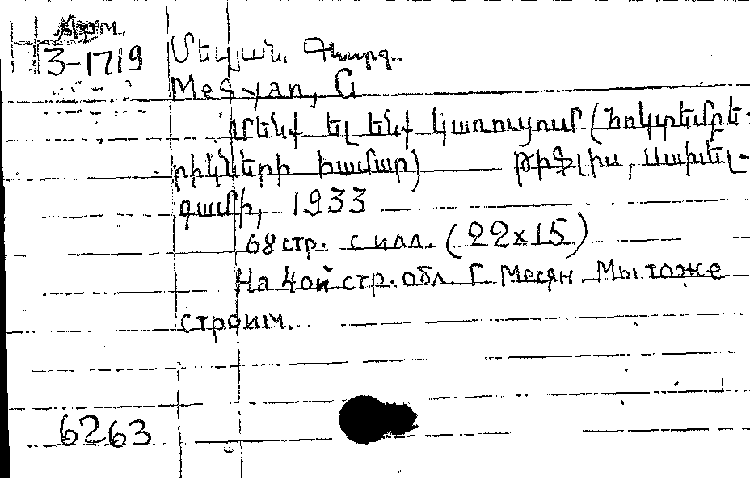 Арм.
3-1719
Մեսյան, Գևորգ.
Mesyan, G
Մենվ ել ենվ կառուցում (Հոկտեմբե-
րիկների համար) Թիֆլիս, Սախել-
գամի, 1933
68 стр. с илл. (22x15)
На 4ой стр. обл. Г. Месян Мы тоже
строим.
6263